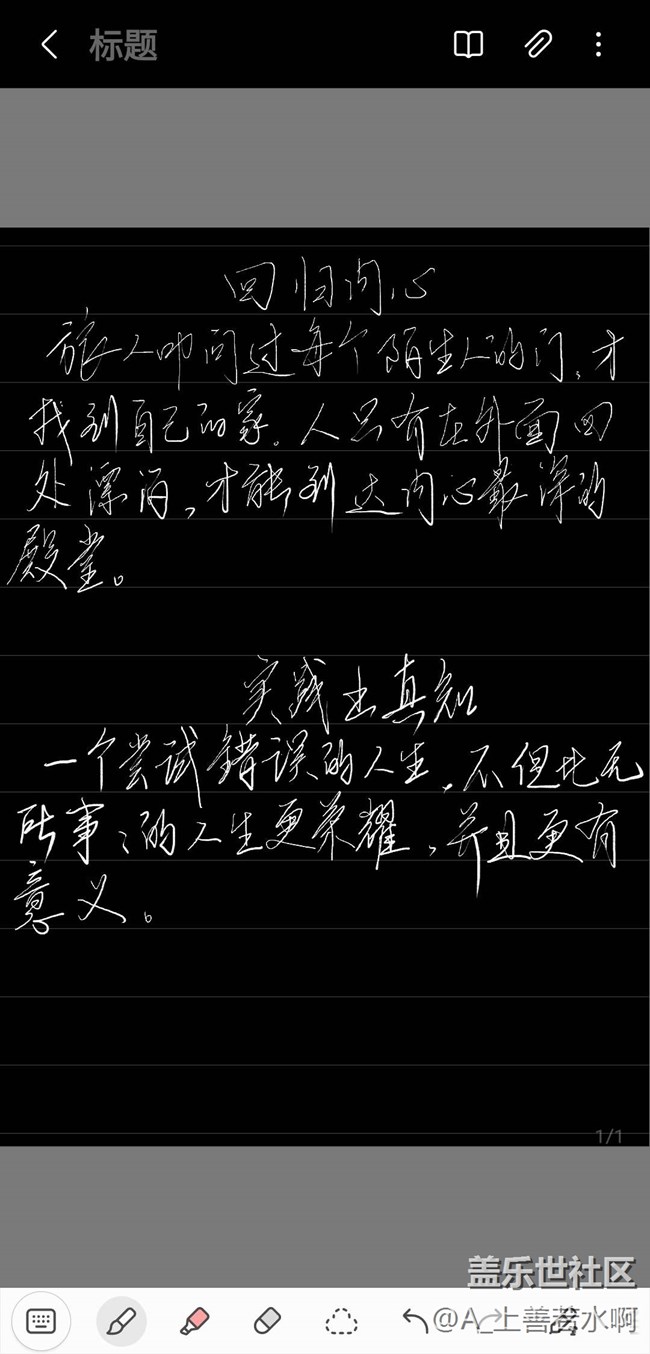 标题
回归内心
旅人叩问过每个陌生人的门,才
找到自己的家。人只有在外面四
处漂泊,才能到达内心最深的
殿堂。
实践出真知
一个尝试错误的人生,不但比无
所事事的人生更荣耀,并且更有
意义。
1/1
盖乐世社区
@A_上善若水啊